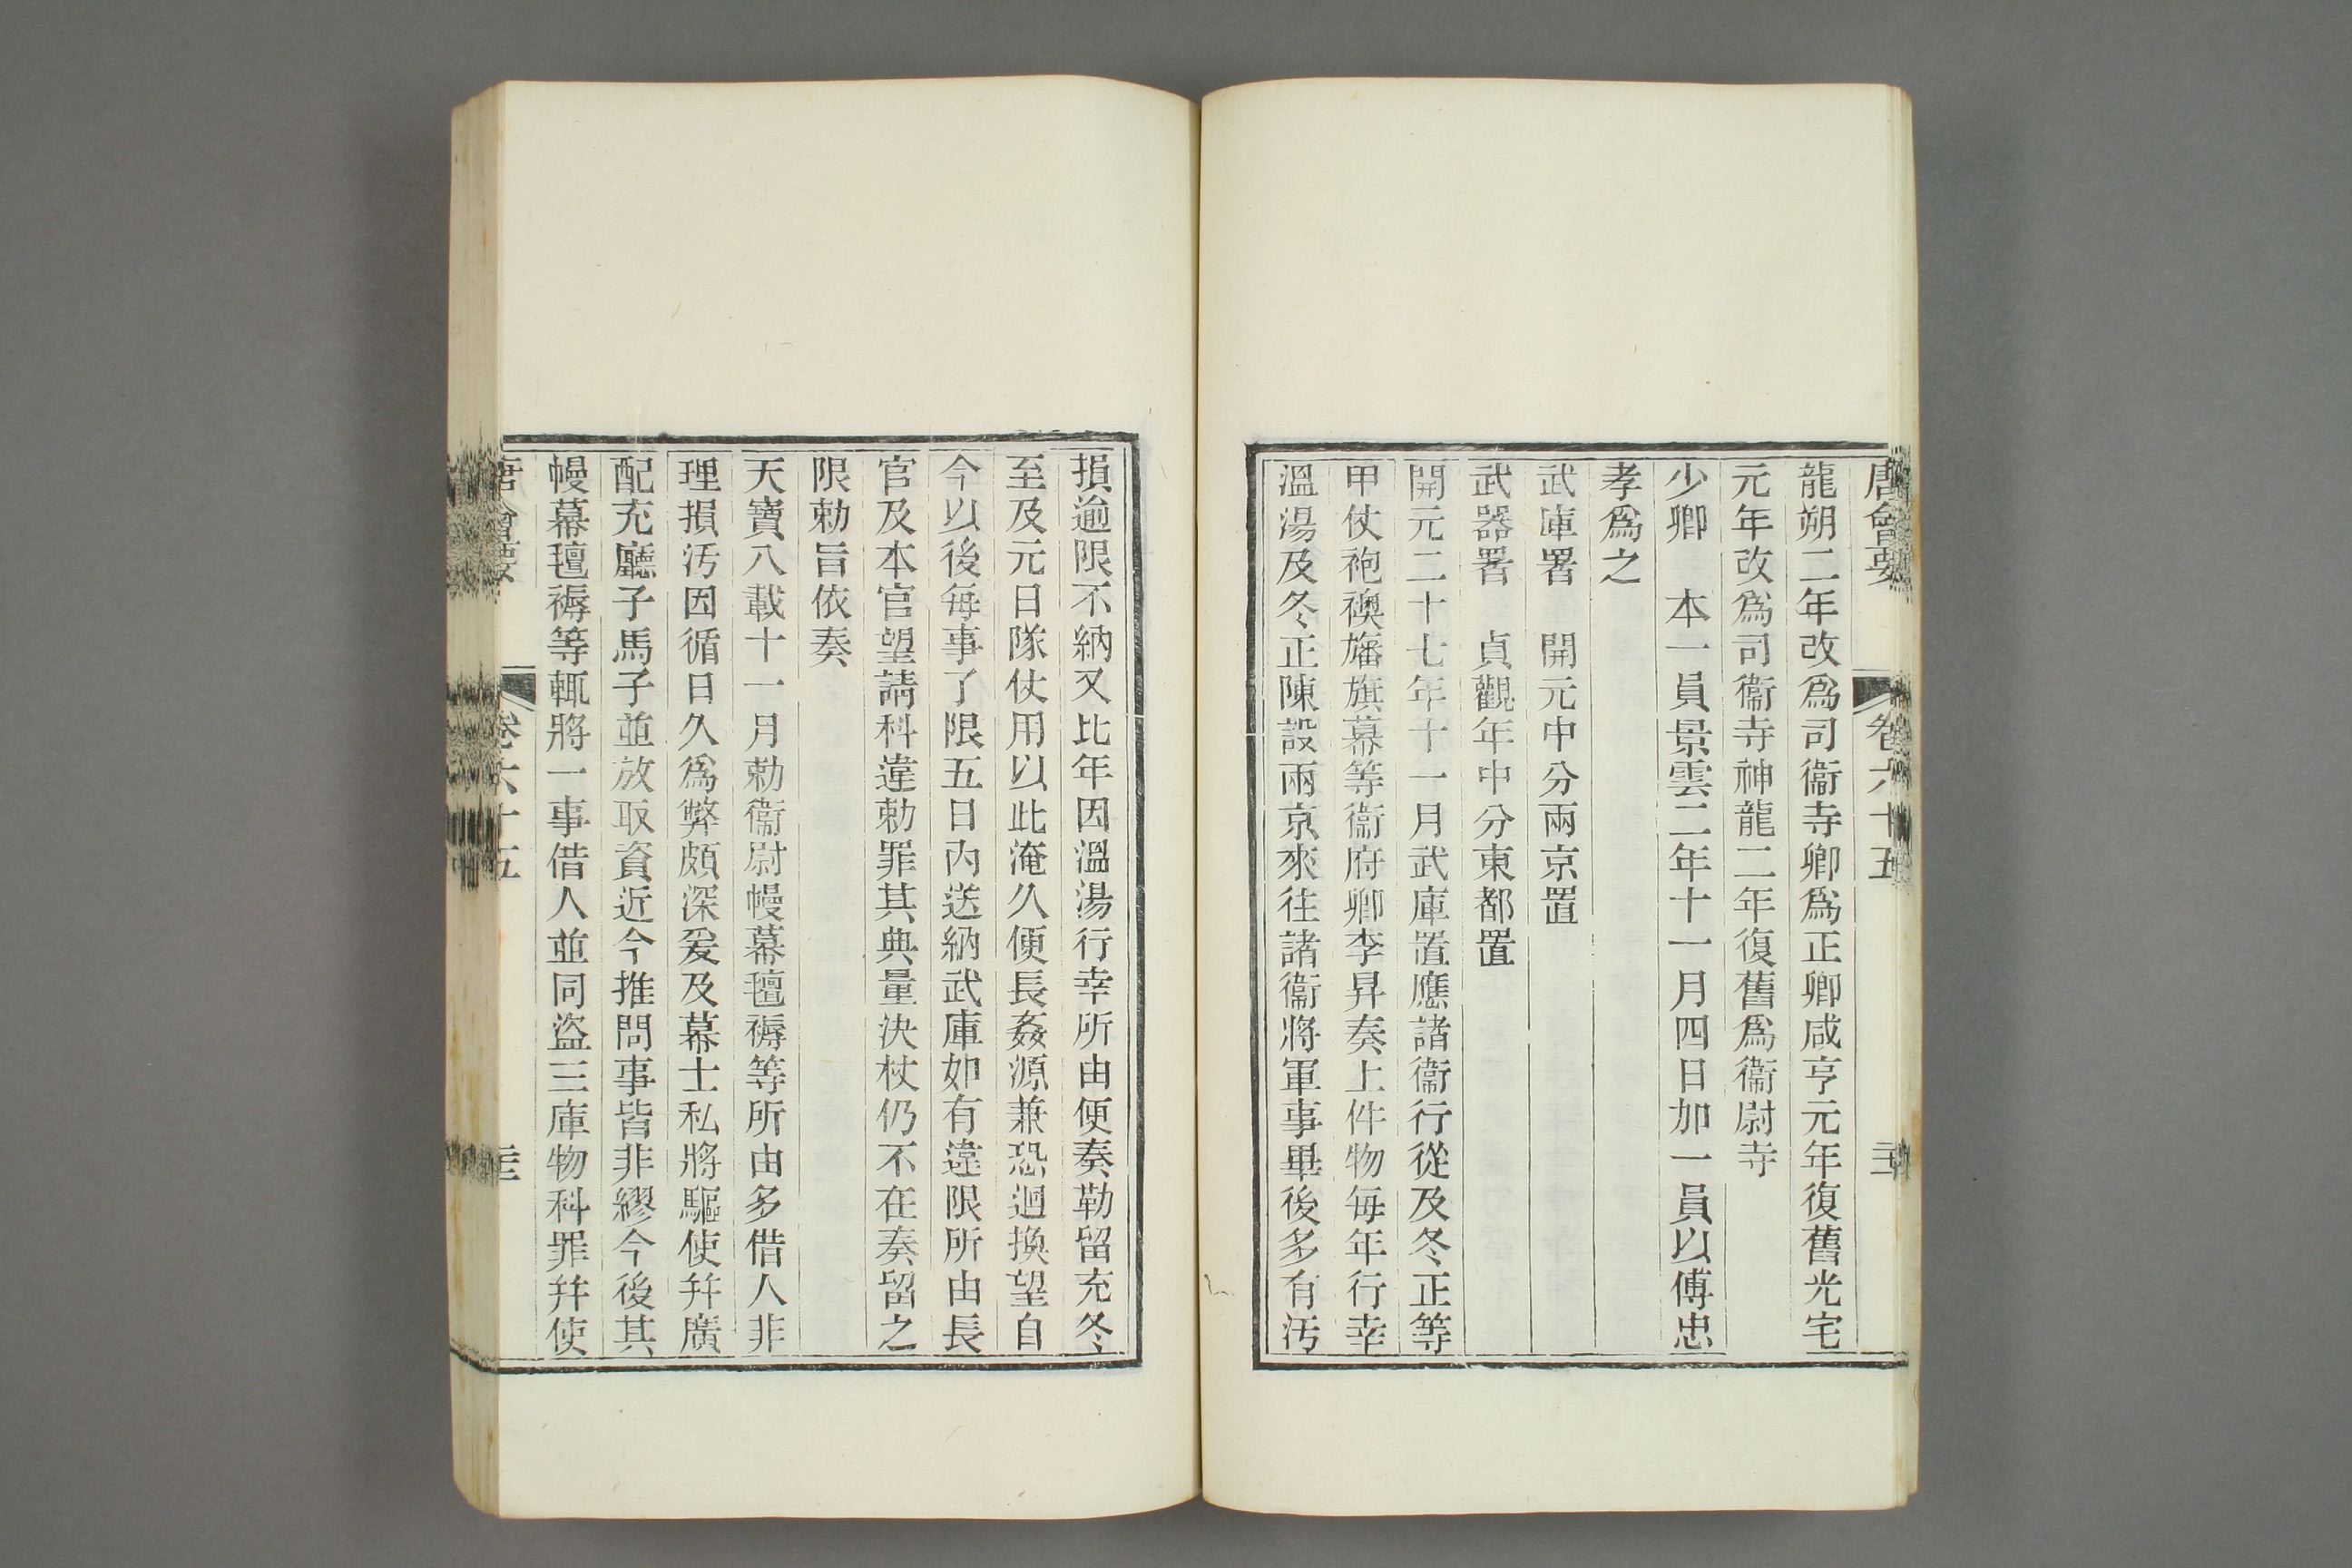 唐會要 卷六十五
龍朔二年改爲司衞寺卿爲正卿咸亨元年復舊光宅
元年改爲司衞寺神龍二年復舊爲衞尉寺
少卿 本一員景雲二年十一月四日加一員以傅忠
孝爲之
武庫署 開元中分兩京置
武器署 貞觀年中分東都置
開元二十七年十一月武庫置應諸衞行從及冬正等
甲仗袍襖旛旗幕等衞府卿李昇奏上件物每年行幸
溫湯及冬正陳設兩京來往諸衞將軍事畢後多有汚
損逾限不納又比年因溫湯行幸所由便奏勒留充冬
至及元日隊仗用以此淹久便長姦源兼恐迴換望自
今以後每事了限五日內送納武庫如有違限所由長
官及本官望請科違勅罪其典量決杖仍不在奏留之
限勅旨依奏
天寶八載十一月勅衞尉幔幕氊褥等所由多借人非
理損汚因循日久爲弊頗深爰及幕士私將驅使幷廣
配充廳子馬子並放取資近令推問事皆非繆今後其
幔幕氊褥等輒將一事借人並同盜三庫物科罪幷使
唐會要 卷六十五